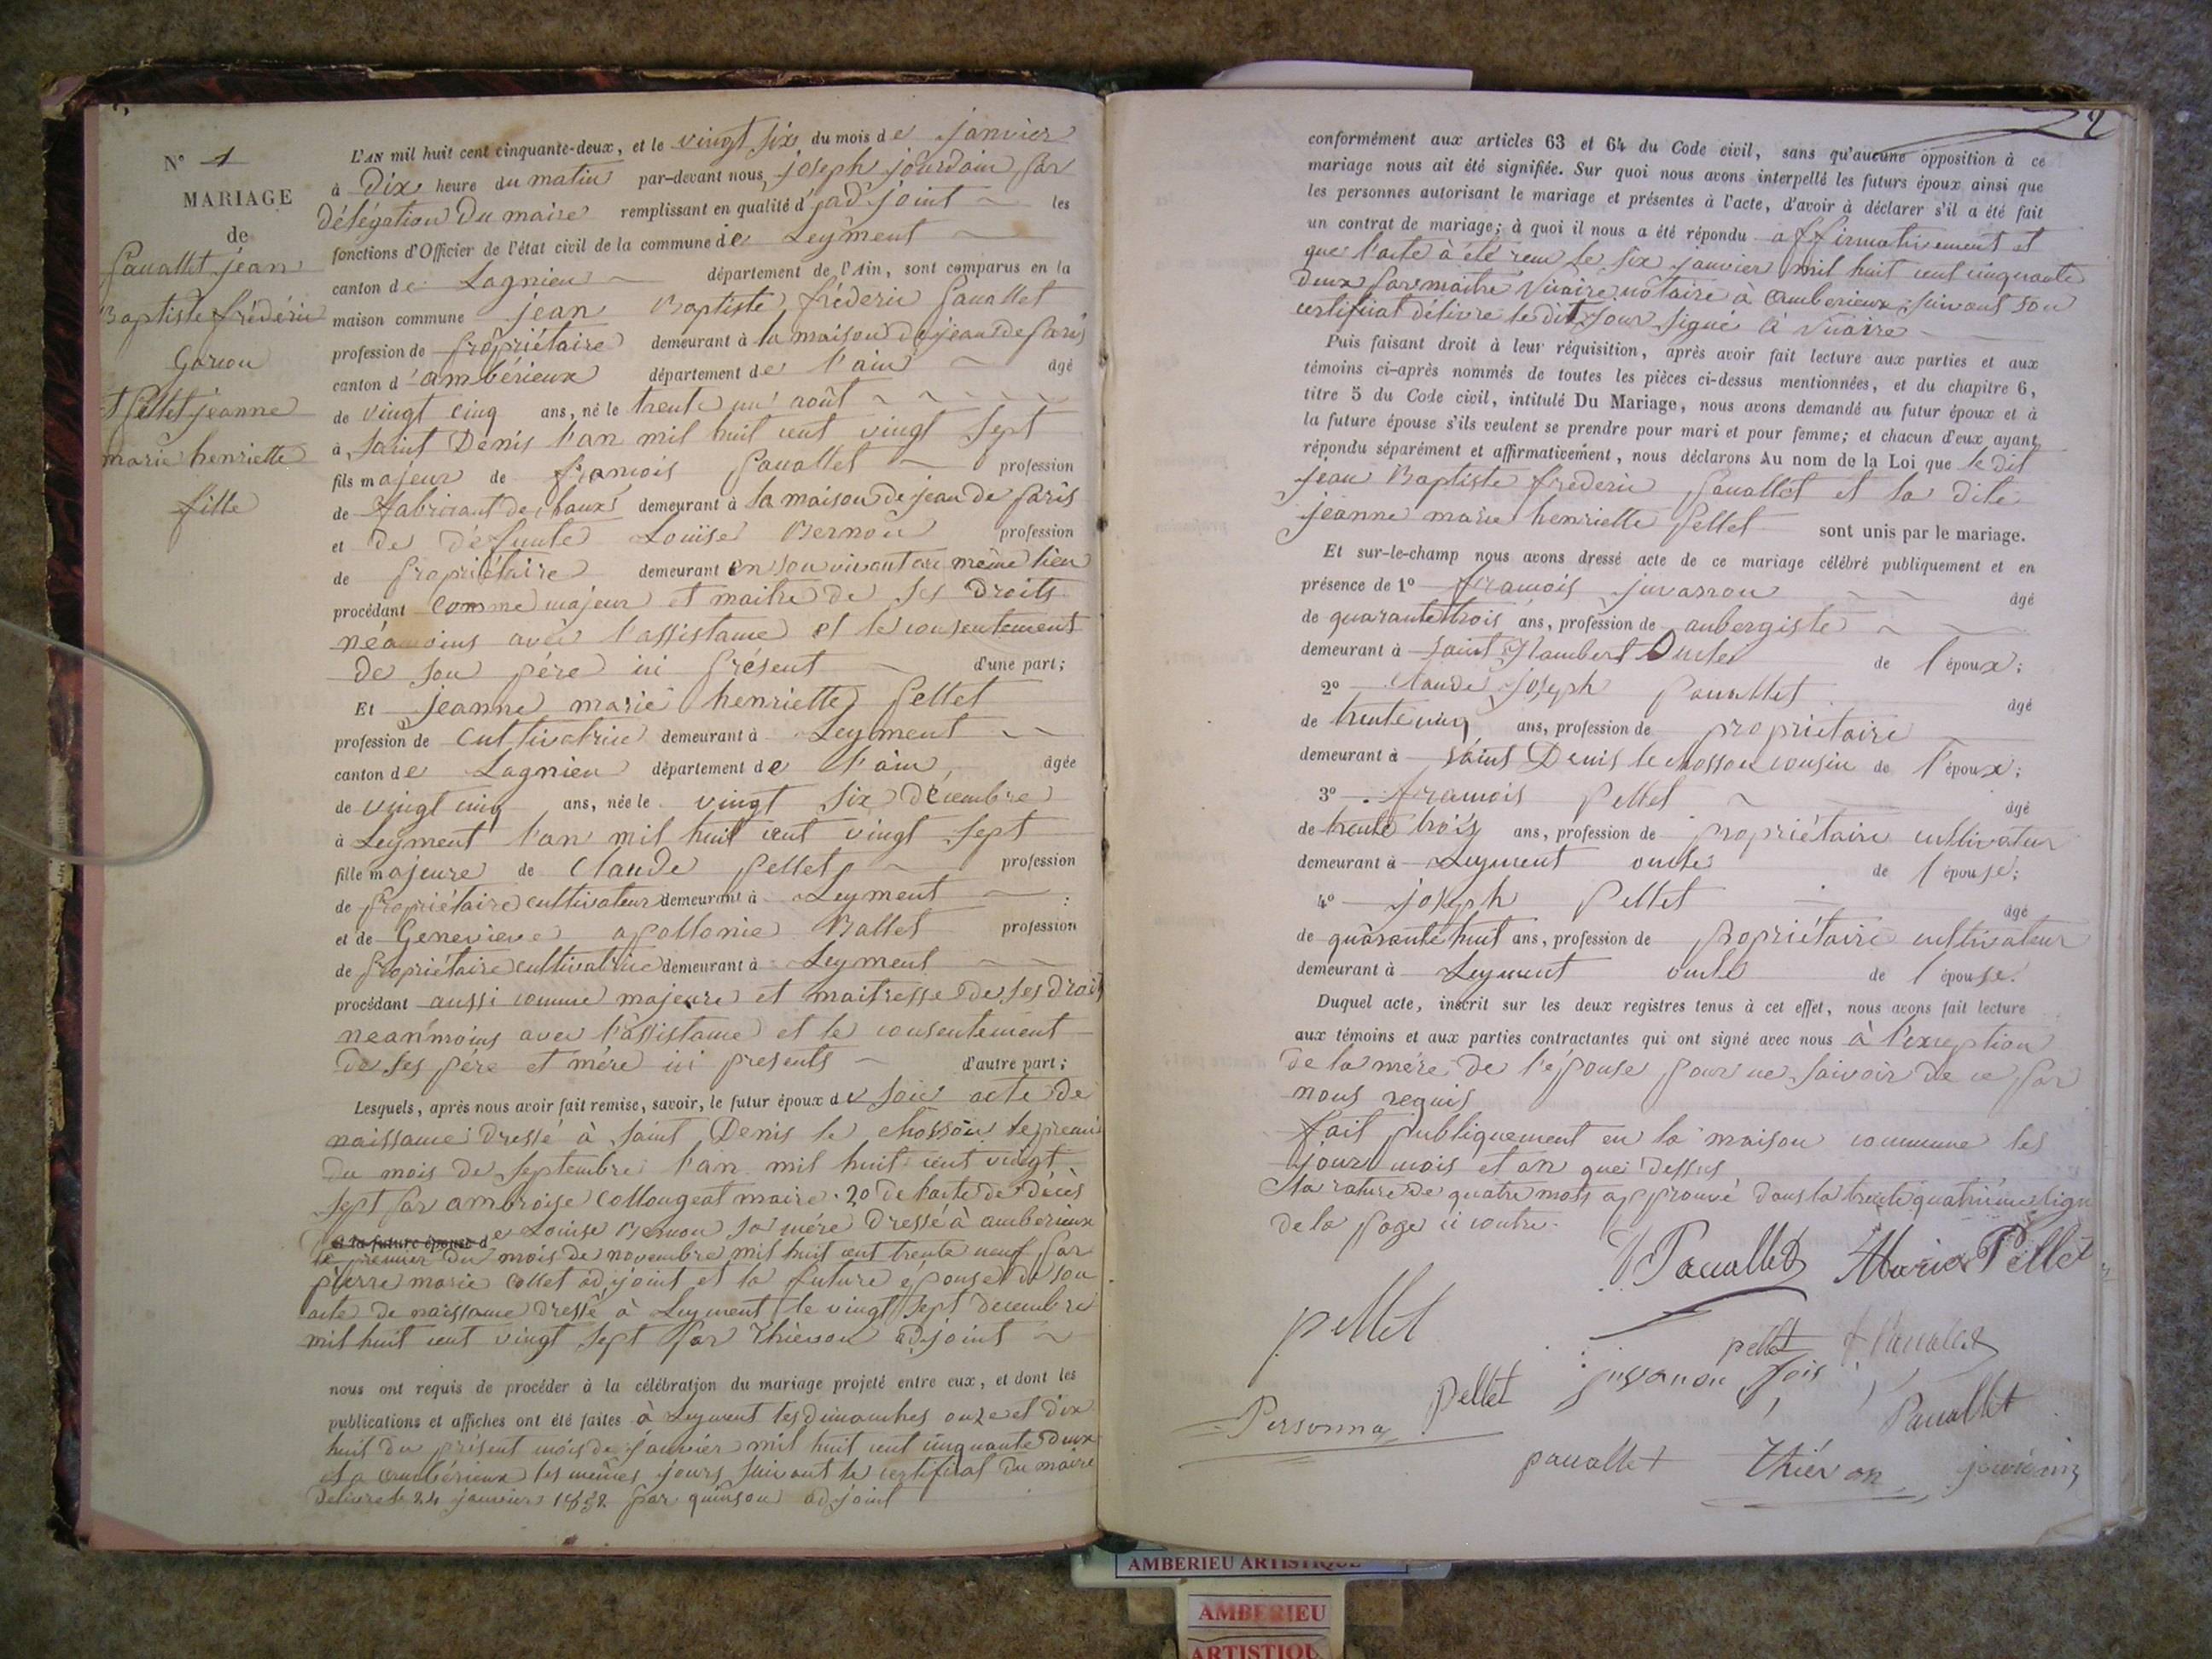 N° 1
MARIAGE
de
Pauallet jean
Baptiste frédéric
Garcon
et Pellet jeanne
marie henriette
fille
L'AN mil huit cent cinquante-deux, et le vingt six du mois de janvier
à Dix heure du matin par-devant nous, joseph jourdain par
délégation du maire remplissant en qualité d'adjoint les
fonctions d'Officier de l'état civil de la commune de Leyment
canton de Lagnieu département de l'Ain, sont comparus en la
maison commune jean Baptiste fréderic Pauallet
profession de propriétaire demeurant à la maison de jean de paris
canton d'ambérieux département de l'ain âgé
de vingt cinq ans, né le trente un août
à saint Denis l'an mil huit cent vingt sept
fils majeur de francois Pauallet profession
de fabricant de chaux demeurant à la maison de jean de paris
et de défunte Louise Bernon profession
de propriétaire demeurant en son vivant au même lieu
procédant comme majeur et maitre de ses droits
néamoins avec l'assistance et le consentement
de son père ici présent d'une part;
Et jeanne marie henriette pellet
profession de cultivatrice demeurant à Leyment
canton de Lagnieu département de l'ain, âgée
de vingt cinq ans, née le vingt six décembre
à Leyment l'an mil huit cent vingt sept
fille majeure de Claude pellet profession
de propriétaire cultivateur demeurant à Leyment :
et de Genevieve apollonie Ballet profession
de propriétaire cultivatrice demeurant à Leyment
procédant aussi comme majeure et maitresse de ses droits
neanmoins avec l'assistance et le consentement
de ses père et mère ici presents d'autre part;
Lesquels, après nous avoir fait remise, savoir, le futur époux de son acte de
naissance dressé à saint Denis le chosson le premier
du mois de septembre l'an mil huit cent vingt
sept par ambroise Collougeat maire. 2o de l'acte de décès
et la future épouse de Louise Bernon sa mère dressé à amberieux
le premier du mois de novembre mil huit cent trente neuf par
pierre marie Collet adjoint et la future épouse de son
acte de naissance dressé à Leyment le vingt sept decembre
mil huit cent vingt sept par Thievon adjoint
nous ont requis de procéder à la célébration du mariage projeté entre eux, et dont les
publications et affiches ont été faites à Leyment les dimanches onze et dix
huit du présent mois de janvier mil huit cent cinquante deux
et a amberieux les mêmes jours suivant le certificat du maire
délivré le 24 janvier 1852 par quinson adjoint
2
conformément aux articles 63 et 64 du Code civil, sans qu'aucune opposition à ce
mariage nous ait été signifiée. Sur quoi nous avons interpellé les futurs époux ainsi que
les personnes autorisant le mariage et présentes à l'acte, d'avoir à déclarer s'il a été fait
un contrat de mariage; à quoi il nous a été répondu affirmativement et
que l'acte à été recu le six janvier mil huit cent cinquante
deux par maitre Vuaire notaire à amberieux suivant son
certificat délivré le dit jour signé à Vuaire
Puis faisant droit à leur réquisition, après avoir fait lecture aux parties et aux
témoins ci-après nommés de toutes les pièces ci-dessus mentionnées, et du chapitre 6,
titre 5 du Code civil, intitulé Du Mariage, nous avons demandé au futur époux et à
la future épouse s'ils veulent se prendre pour mari et pour femme; et chacun d'eux ayant
répondu séparément et affirmativement, nous déclarons Au nom de la Loi que le dit
jean Baptiste frederic pauallet et la dite
jeanne marie henriette pellet sont unis par le mariage.
Et sur-le-champ nous avons dressé acte de ce mariage célébré publiquement et en
présence de 1° francois juvanon âgé
de quarante trois ans, profession de aubergiste
demeurant à saint Rambert Oncle de l'époux;
2° Claude joseph pauallet âgé
de trente cinq ans, profession de propriétaire
demeurant à saint Denis le chosson cousin de l'époux;
3° francois pellet âgé
de trente trois ans, profession de propriétaire cultivateur
demeurant à Leyment oncle de l'épouse;
4° joseph pellet âgé
de quarante huit ans, profession de propriétaire cultivateur
demeurant à Leyment oncle de l'épouse.
Duquel acte, inscrit sur les deux registres tenus à cet effet, nous avons fait lecture
aux témoins et aux parties contractantes qui ont signé avec nous à l'exception
de la mère de l'épouse pour ne saivoir de ce par
nous requis
fait publiquement en la maison commune les
jour mois et an que dessus
la rature de quatre mots approuvé dans la trente quatrième lign
de la page ci contre.
Pauallet Maria Pellet
pellet
pellet Pauallet
pellet juvanon fois
Personnaz Pauallet
pauallet Thiévon jourdain
AMBERIEU ARTISTIQUE
AMBERIEU
ARTISTIQU